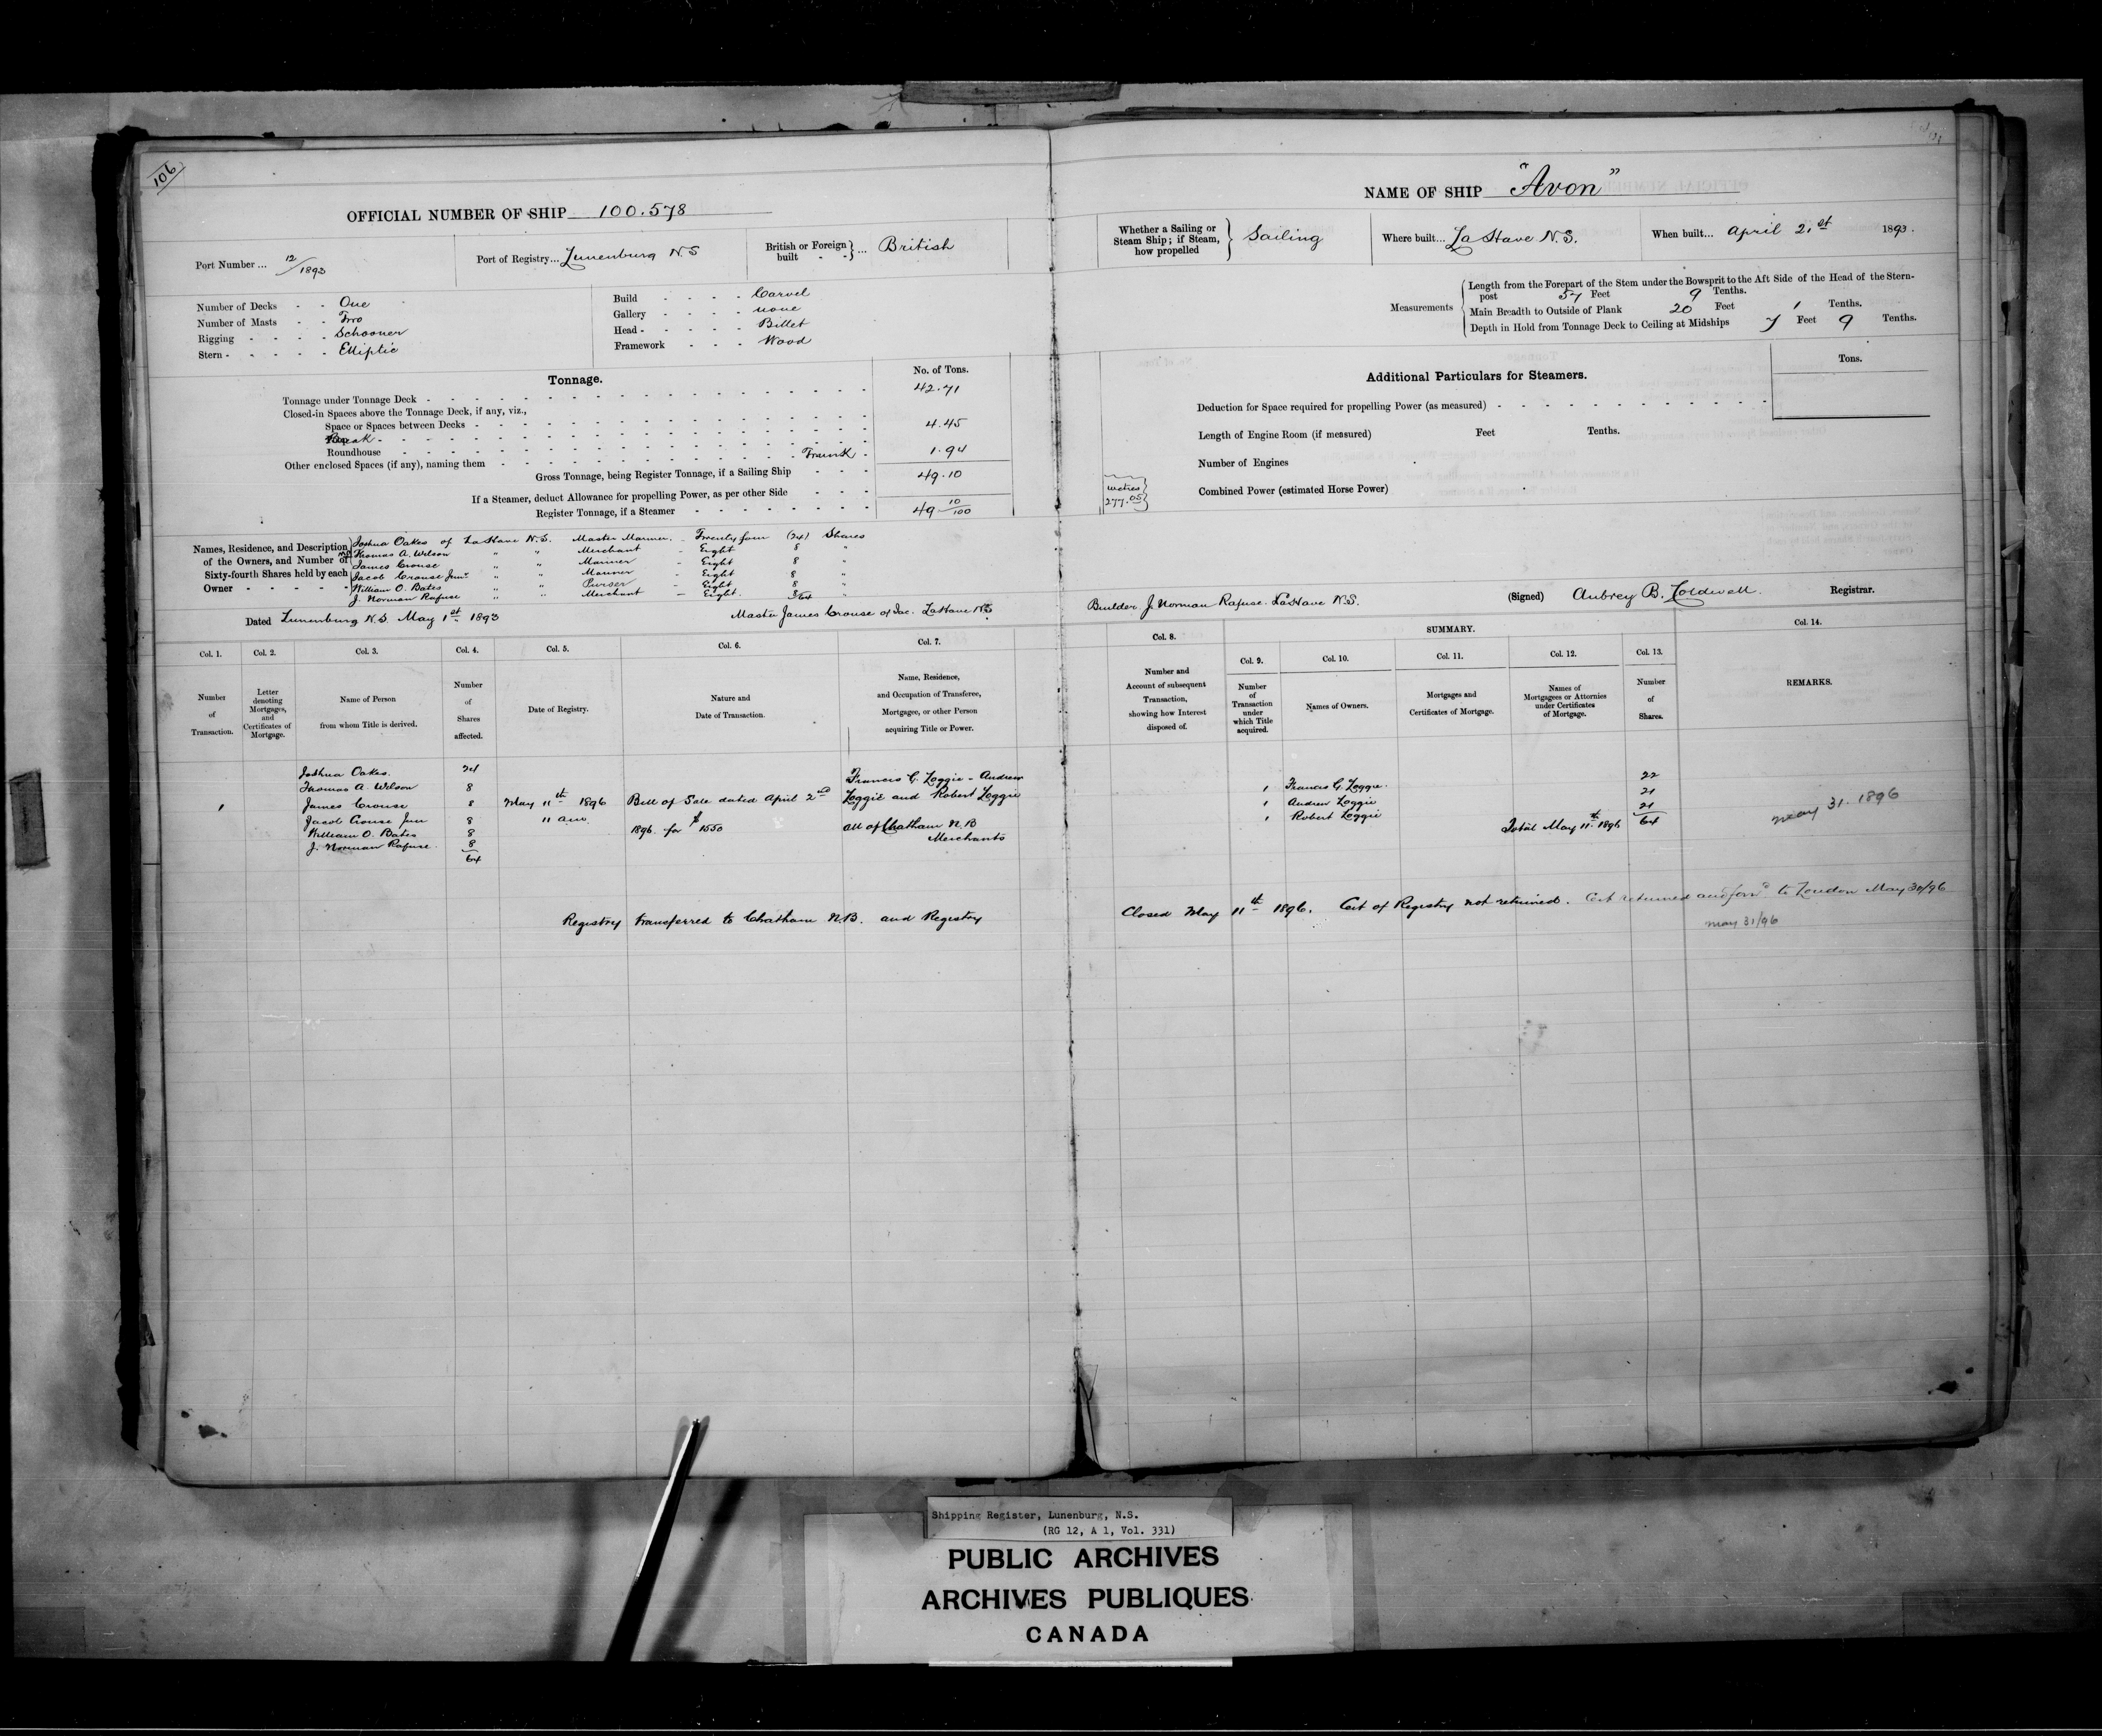 106
OFFICIAL NUMBER OF SHIP 100.578
Port Number ... 12/1893
Port of Registry... Lunenburg N.S
British or Foreign built - - } ... British
Number of Decks - - One
Number of Masts - - Two
Rigging - - - - Schooner
Stern - - - - - Elliptic
Build - - - - Carvel
Gallery - - - - none
Head - - - - - Billet
Framework - - - Wood
Tonnage.
No. of Tons.
Tonnage under Tonnage Deck - 42.71
Closed-in Spaces above the Tonnage Deck, if any, viz.,
Space or Spaces between Decks - 4.45
Break -
Roundhouse -
Other enclosed Spaces (if any), naming them - Trunk - 1.94
Gross Tonnage, being Register Tonnage, if a Sailing Ship - - - 49.10
If a Steamer, deduct Allowance for propelling Power, as per other Side - - -
Register Tonnage, if a Steamer - 49 10/100
Names, Residence, and Description
of the Owners, and Number of
Sixty-fourth Shares held by each
Owner - - - - -
Joshua Oakes of LaHave N.S. Master Mariner. - Twenty four (24) Shares
Thomas A. Wilson " " Merchant - Eight 8 "
James Crouse " " Mariner - Eight 8 "
Jacob Crouse Junr. " " Mariner - Eight 8 "
William O. Bates " " Purser - Eight 8 "
J. Norman Rafuse " " Merchant - Eight. 8 "
64
Dated Lunenburg N.S. May 1st 1893
Master James Crouse of Jac. LaHave N.S
Col. 1.
Number
of
Transaction.
Col. 2.
Letter
denoting
Mortgages,
and
Certificates of
Mortgage.
Col. 3.
Name of Person
from whom Title is derived.
Col. 4.
Number
of
Shares
affected.
Col. 5.
Date of Registry.
Col. 6.
Nature and
Date of Transaction.
Col. 7.
Name, Residence,
and Occupation of Transferee,
Mortgagee, or other Person
acquiring Title or Power.
Joshua Oakes. 24 Francis G. Loggie - Andrew
Thomas A. Wilson 8
1 James Crouse 8 May 11th 1896 Bill of Sale dated April 2nd Loggie and Robert Loggie
Jacob Crouse Jun 8 11 am.
William O. Bates 8 1896. for $1550 all of Chatham N.B
J. Norman Rafuse. 8 Merchants
64
Registry transferred to Chatham N.B. and Registry
NAME OF SHIP "Avon"
Whether a Sailing or
Steam Ship; if Steam,
how propelled
Sailing
Where built... LaHave N.S.
When built... April 21st 1893.
Measurements
Length from the Forepart of the Stem under the Bowsprit to the Aft Side of the Head of the Stern-
post 57 Feet 9 Tenths.
Main Breadth to Outside of Plank 20 Feet 1 Tenths.
Depth in Hold from Tonnage Deck to Ceiling at Midships 7 Feet 9 Tenths.
Additional Particulars for Steamers.
Tons.
Deduction for Space required for propelling Power (as measured) -
Length of Engine Room (if measured) Feet Tenths.
Number of Engines
Combined Power (estimated Horse Power)
metres
277.05
Builder. J. Norman Rafuse. LaHave N.S.
(Signed) Aubrey B. Coldwell. Registrar.
Col. 8.
Number and
Account of subsequent
Transaction,
showing how Interest
disposed of.
SUMMARY.
Col. 9.
Number
of
Transaction
under
which Title
acquired.
Col. 10.
Names of Owners.
Col. 11.
Mortgages and
Certificates of Mortgage.
Col. 12.
Names of
Mortgagees or Attornies
under Certificates
of Mortgage.
Col. 13.
Number
of
Shares.
Col. 14.
REMARKS.
1 Francis G. Loggie. 22
1 Andrew Loggie 21
1 Robert Loggie 21
Total May 11th 1896 64
May 31. 1896
Closed May 11th 1896. Cert of Registry not returned. Cert returned and forwd to London May 30/96
May 31/96
Shipping Register, Lunenburg, N.S.
(RG 12, A 1, Vol. 331)
PUBLIC ARCHIVES
ARCHIVES PUBLIQUES
CANADA